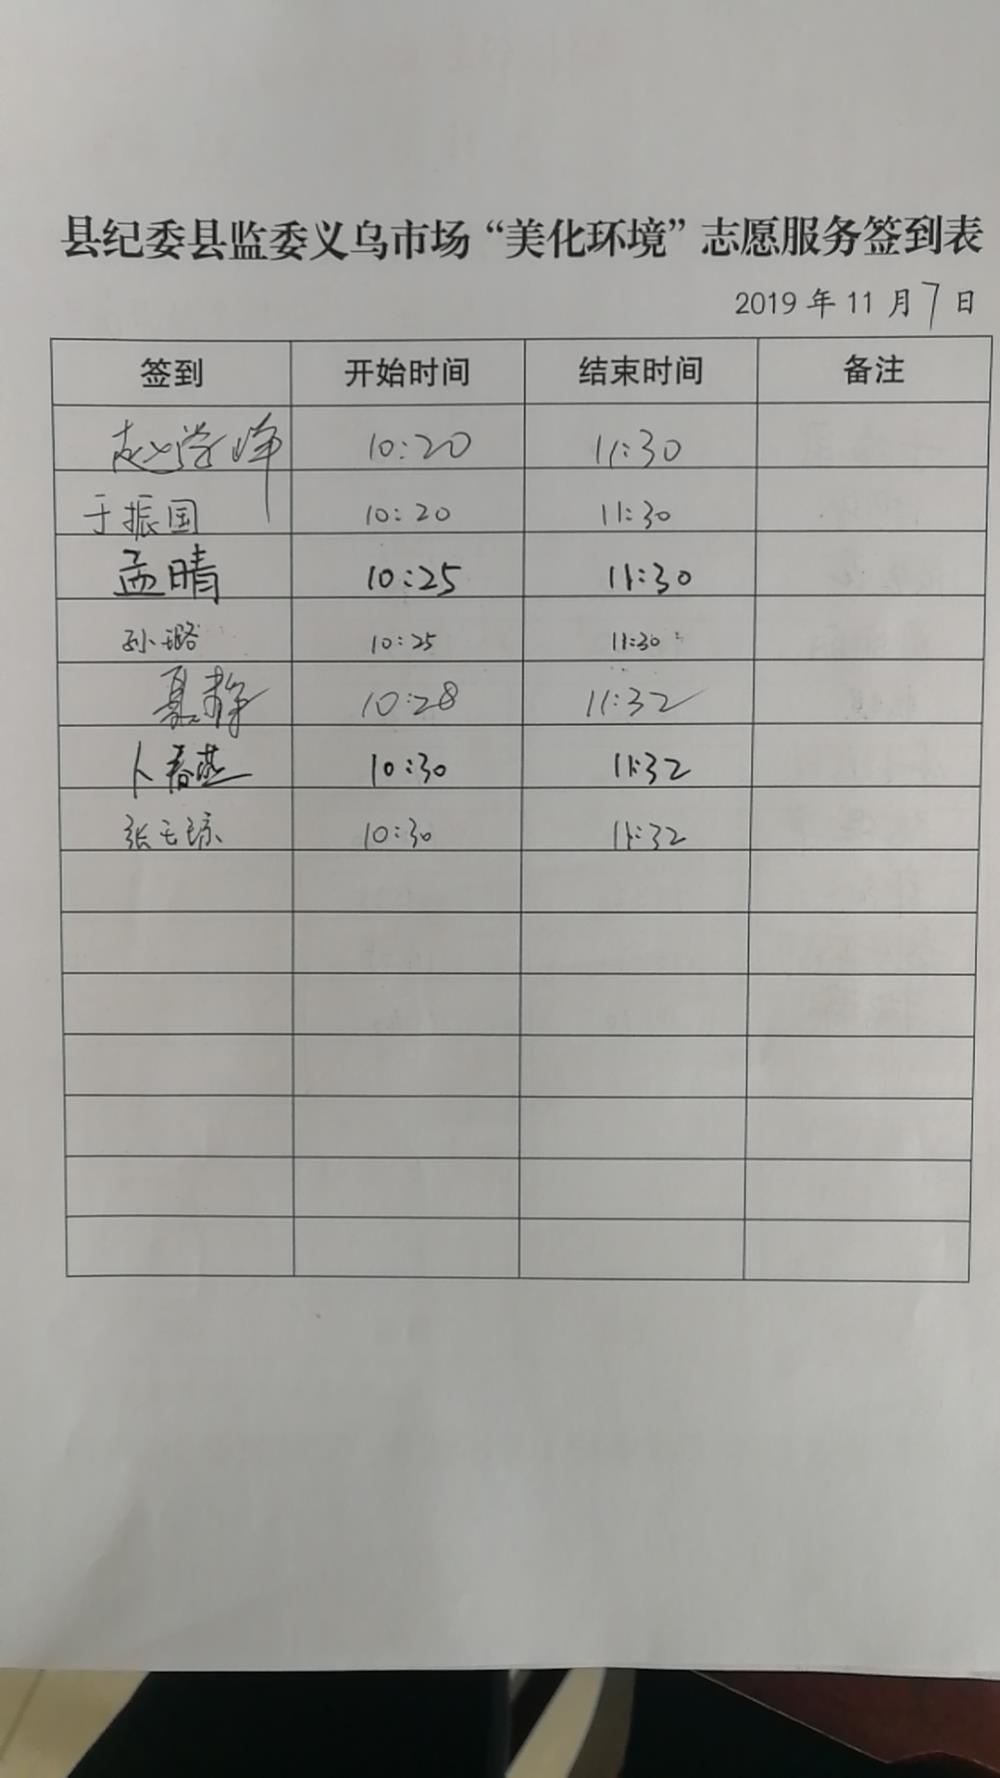 县纪委县监委义乌市场“美化环境”志愿服务签到表
2019年11月7日
签到 开始时间 结束时间 备注
赵学峰 10:20 11:30
于振国 10:20 11:30
孟晴 10:25 11:30
孙璐 10:25 11:30
夏静 10:28 11:32
卜春燕 10:30 11:32
张玉琼 10:30 11:32